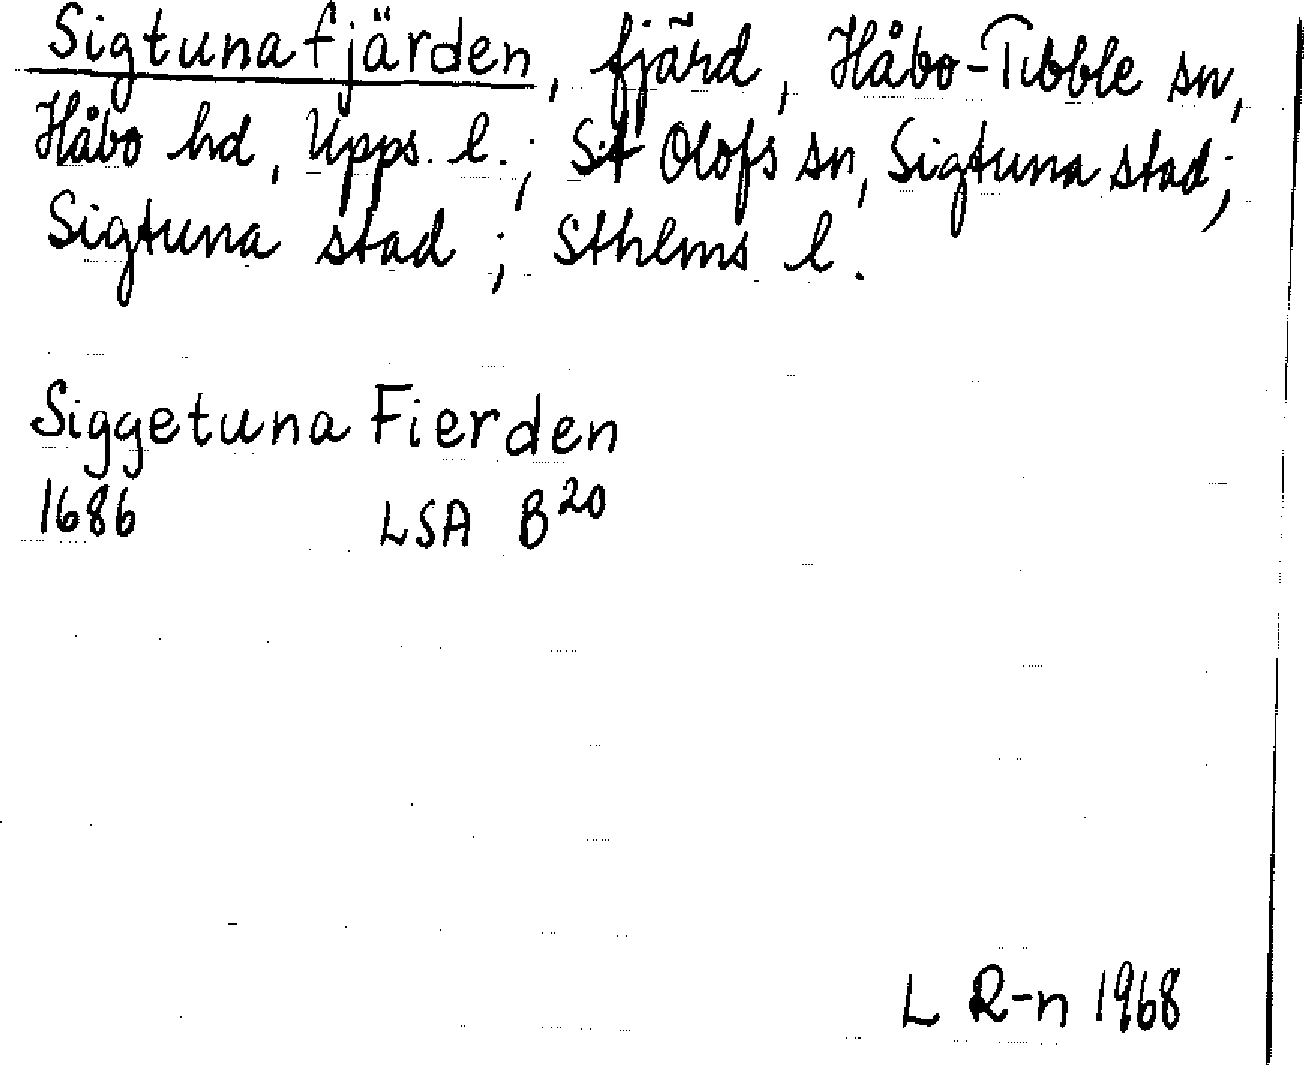 Sigtunafjärden, fjärd, Håbo-Tibble sn,
Håbo hd, Upps. l.; S:t Olofs sn, Sigtuna stad;
Sigtuna stad; Sthlms l.
Siggetuna Fierden
1686 LSA B 20
L R-n 1968